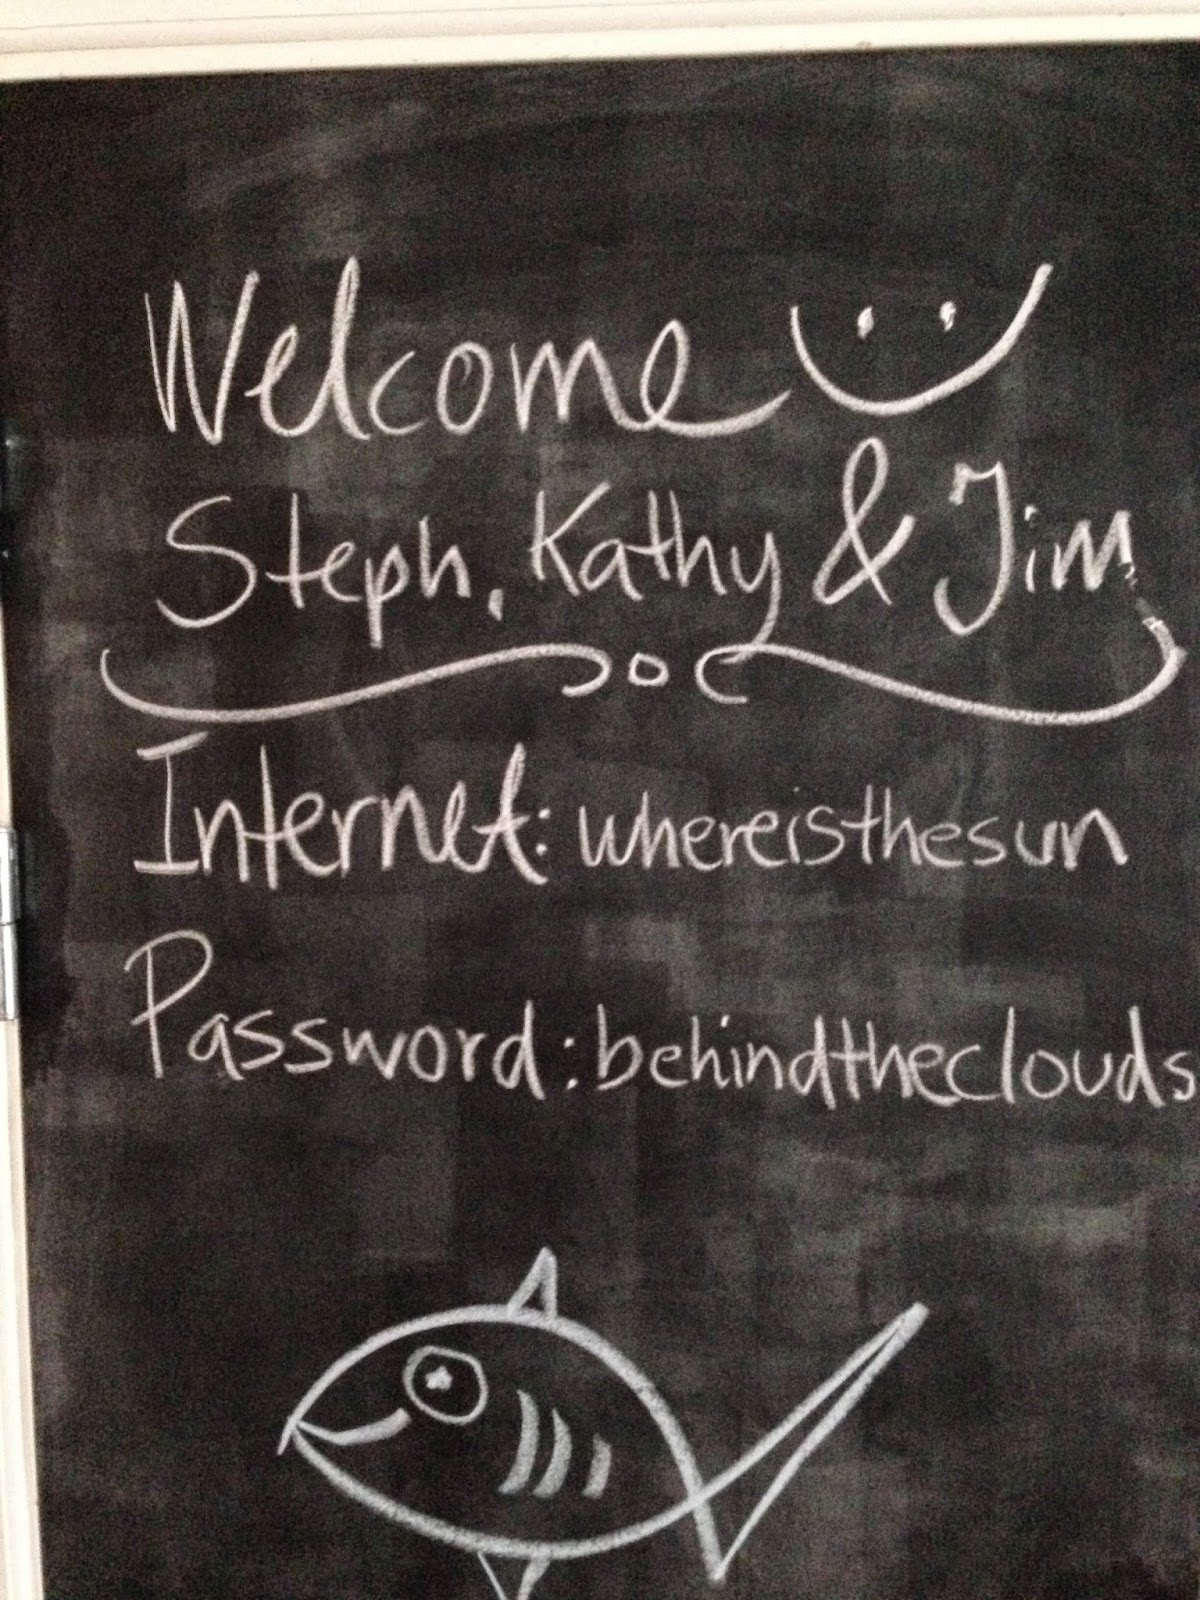 Welcome
Steph, Kathy & Jim
Internet: whereisthesun
Password: behindtheclouds